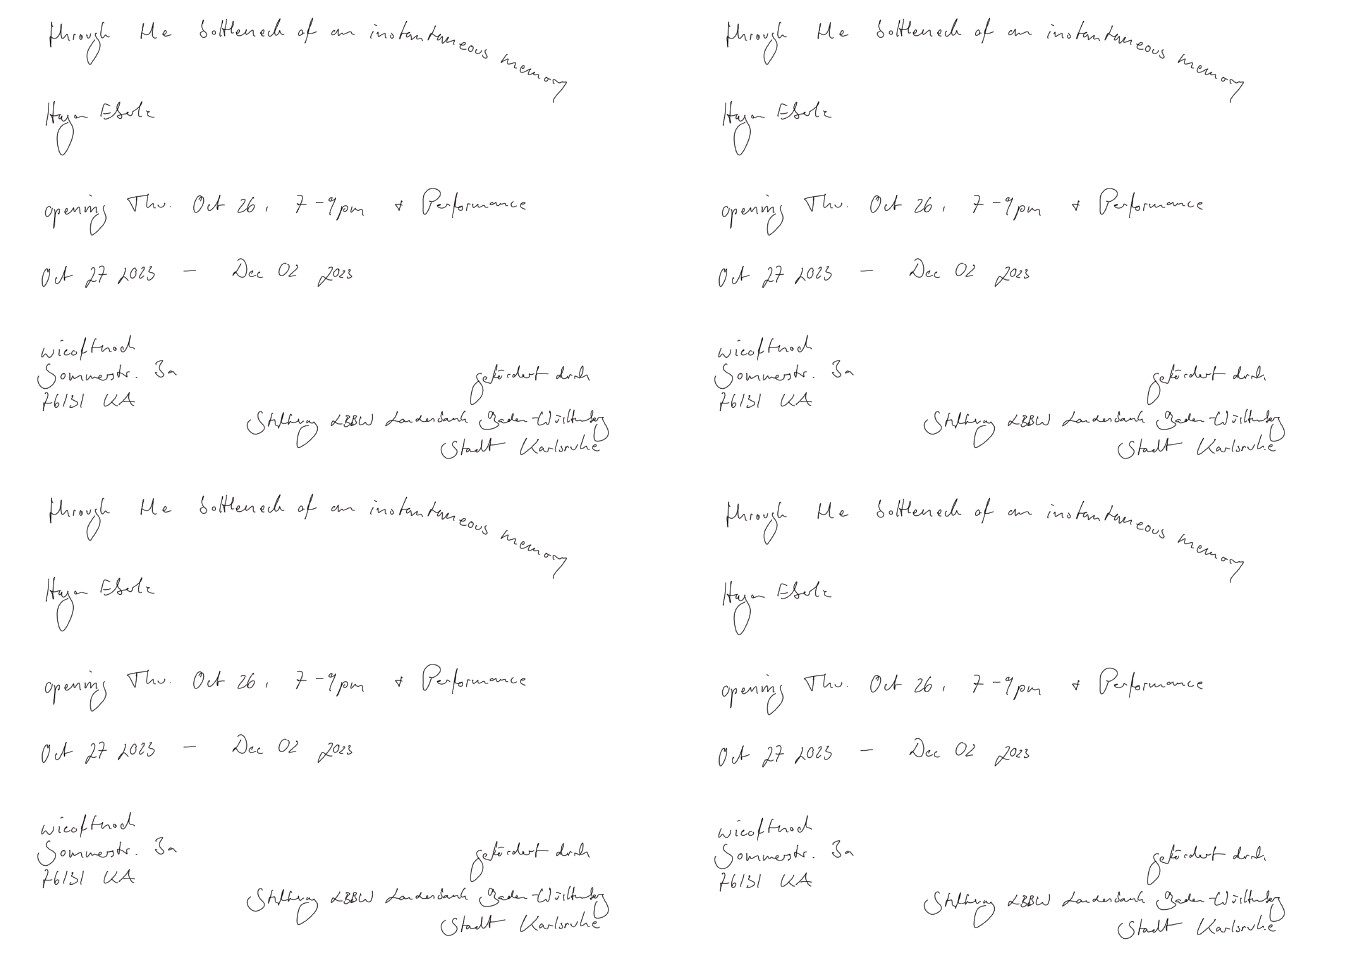 through the bottleneck of an instantaneous memory
Hagen Eberle
opening Thu. Oct 26, 7-9pm + Performance
Oct 27 2023 - Dec 02 2023
wieoftnoch
Sommerstr. 3a
76131 KA
gefördert durch
Stiftung LBBW Landesbank Baden-Württemberg
Stadt Karlsruhe
through the bottleneck of an instantaneous memory
Hagen Eberle
opening Thu. Oct 26, 7-9pm + Performance
Oct 27 2023 - Dec 02 2023
wieoftnoch
Sommerstr. 3a
76131 KA
gefördert durch
Stiftung LBBW Landesbank Baden-Württemberg
Stadt Karlsruhe
through the bottleneck of an instantaneous memory
Hagen Eberle
opening Thu. Oct 26, 7-9pm + Performance
Oct 27 2023 - Dec 02 2023
wieoftnoch
Sommerstr. 3a
76131 KA
gefördert durch
Stiftung LBBW Landesbank Baden-Württemberg
Stadt Karlsruhe
through the bottleneck of an instantaneous memory
Hagen Eberle
opening Thu. Oct 26, 7-9pm + Performance
Oct 27 2023 - Dec 02 2023
wieoftnoch
Sommerstr. 3a
76131 KA
gefördert durch
Stiftung LBBW Landesbank Baden-Württemberg
Stadt Karlsruhe